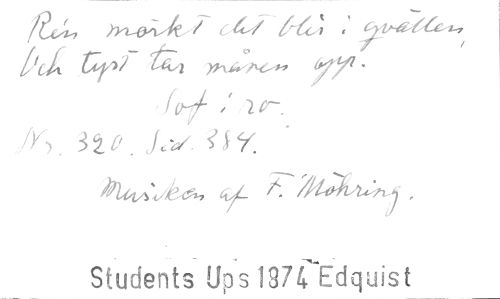 Ren mörkt det blir i qvällen,
Och tyst tar månen opp.
Sof i ro.
Nr. 320. Sid. 384.
Musiken af F. Möhring.
Students Ups 1874 Edquist